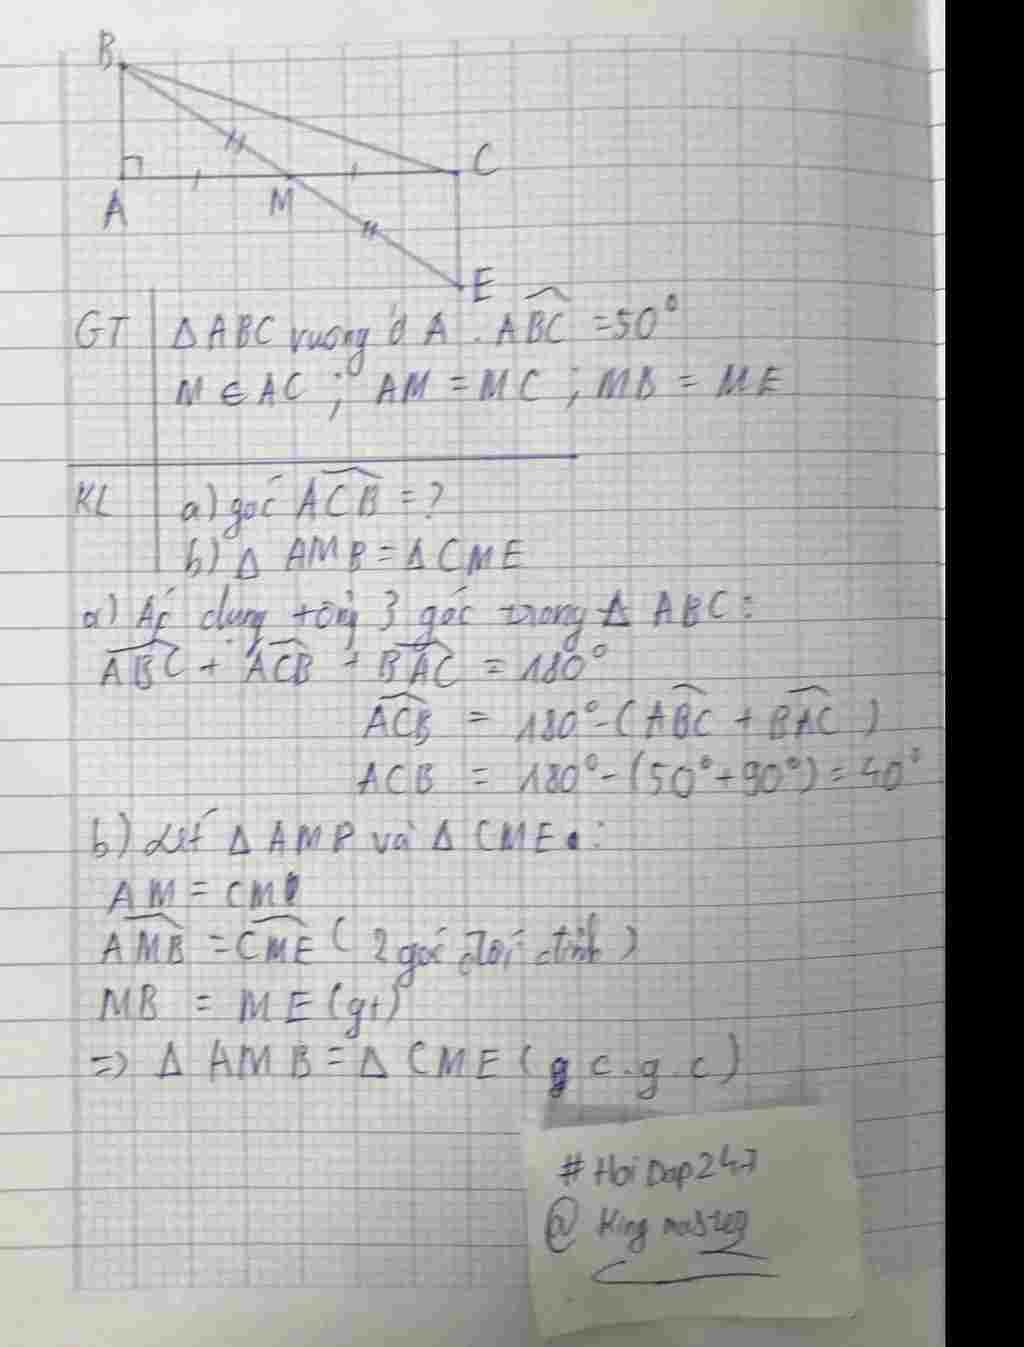 B
C
A
M
E
GT ΔABC vuông ở A . ABC = 50°
M ∈ AC ; AM = MC ; MB = ME
KL a) góc ACB = ?
b) Δ AMB = Δ CME
a) Áp dụng tổng 3 góc trong Δ ABC :
ABC + ACB + BAC = 180°
ACB = 180° - (ABC + BAC)
ACB = 180° - (50° + 90°) = 40°
b) Xét Δ AMB và Δ CME :
AM = CM
AMB = CME ( 2 góc đối đỉnh )
MB = ME (gt)
=> Δ AMB = Δ CME ( c.g.c )
#HoiDap247
@ King master